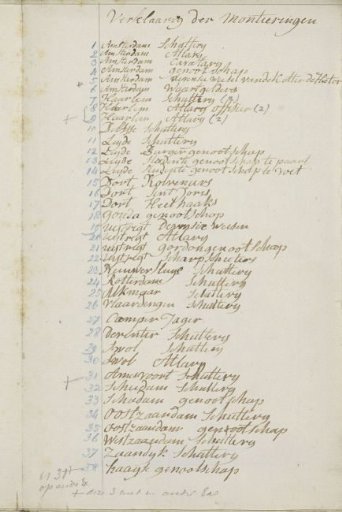 Verklaaring der Montieringen
1 Amsterdamse Schuttery
2 Amsterdam Atlary
3 Amsterdam Cavalary
4 Amsterdam genootschap
5 Amsterdam
6 Amsterdam Waartgelders
7 Haarlem Schuttery (2)
8 Haarlem Atlary offisier (2)
9 Haarlem Atlary (2)
10 Schuttery
11 Lyde Schuttery
12 Lyde Burger genootschap
13 Lyde Studente genootschap te paard
14 Lyde Studente genootschap te voet
15 Dort Kolveniers
16 Dort Sint Joris
17 Dort Heelhaaks
18 Gouda genootschap
19 Uijtregt weesen
20 Uijtregt Atlary
21 Uijtregt gordon genootschap
22 Uijtregt Scharpschutters
23 Schuttery
24 Rotterdam Schuttery
25 Alkmaar Schuttery
26 Vlaardingen Schuttery
27 Camper Jager
28 Deventer Schuttery
29 Swol Schuttery
30 Swol Atlary
31 Amersvoort Schuttery
32 Schiedam Schuttery
33 Schiedam genootschap
34 Oostzaandam Schuttery
35 Oostzaandam genootschap
36 Westzaandam Schuttery
37 Zaandyk Schuttery
38 haagse genootschap